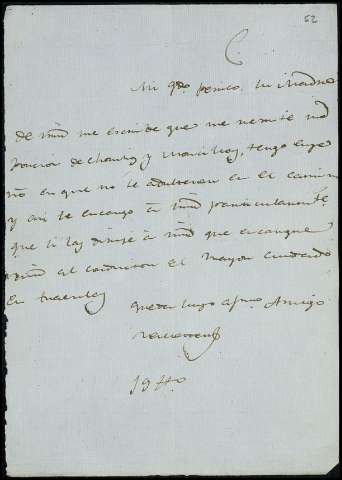 62
Mi qdo perico. la Madre
de Vmd me escribe que me remite una
porcion de chorizos y morcillas, tengo
en que no le adulteren en el camino
y asi le encargo a Vmd particularmte
que si las dirije á Vmd que encargue
Vmd al conductor el mayor cuidado
en traerlas
queda suyo afmo. Amigo
19